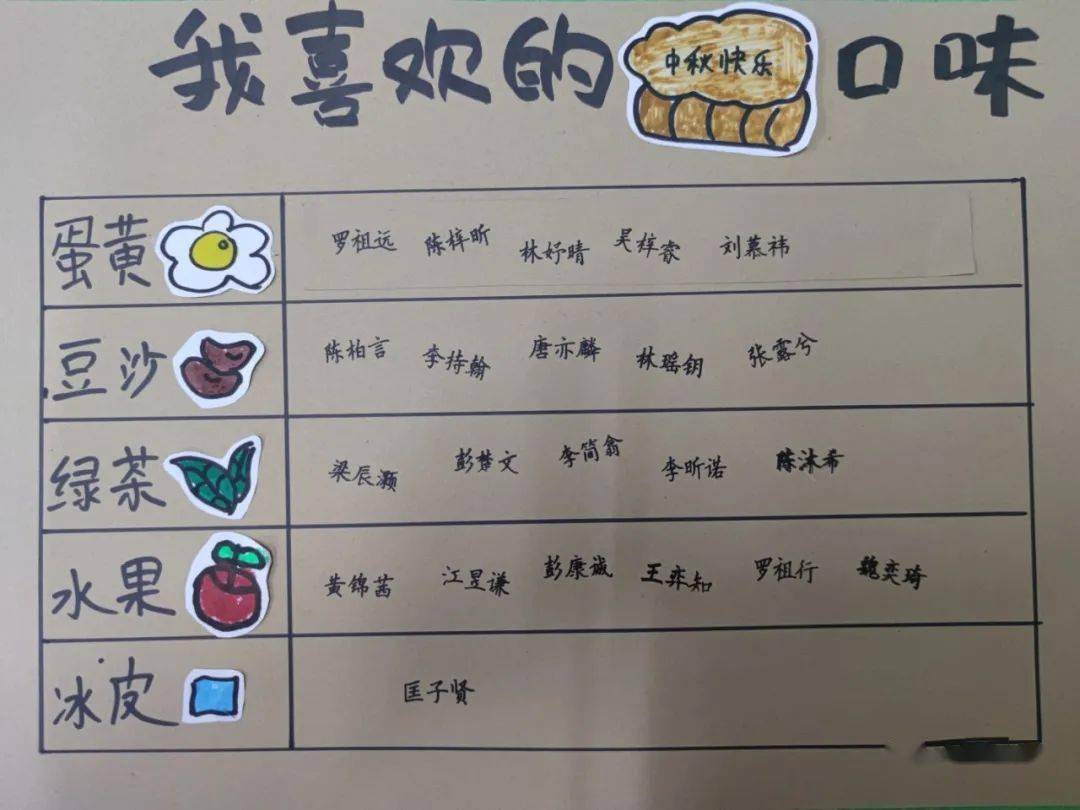 我喜欢的 中秋快乐 口味
蛋黄 罗祖远 陈梓昕 林妤晴 吴梓睿 刘慕祎
豆沙 陈柏言 李持翰 唐亦麟 林瑶钥 张露兮
绿茶 梁辰灏 彭楚文 李简翕 李昕诺 陈沐希
水果 黄锦茜 江昱谦 彭康诚 王弈知 罗祖行 魏奕琦
冰皮 匡子贤